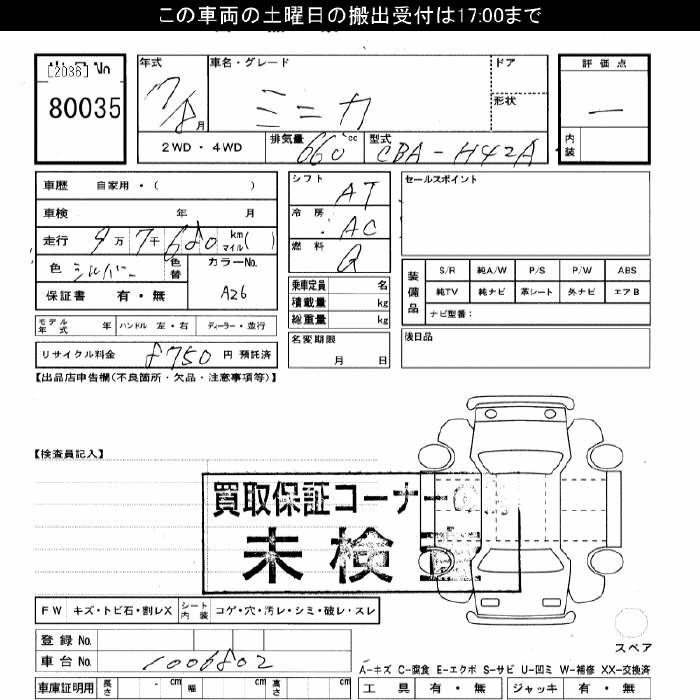 この車両の土曜日の搬出受付は17:00まで
[2036] No
80035
年式
7/8月
車名・グレード
ミニカ
ドア
形状
評価点
—
内装
2WD・4WD
排気量
660cc
型式
CBA-H42A
車歴 自家用・( )
車検 年 月
走行 9万7千680 km マイル( )
色 シルバー 色替
カラーNo.
A26
保証書 有・無
シフト AT
冷房 AC
燃料 G
乗車定員 名
積載量 kg
総重量 kg
セールスポイント
装備品
S/R 純A/W P/S P/W ABS
純TV 純ナビ 革シート 外ナビ エアB
ナビ型番:
モデル年式 年 ハンドル 左・右 ディーラー・並行
名変期限
月 日
後日品
リサイクル料金 8750 円 預託済
【出品店申告欄(不良箇所・欠品・注意事項等)】
【検査員記入】
買取保証コーナー
未検
FW キズ・トビ石・割レX シート内装 コゲ・穴・汚レ・シミ・破レ・スレ
登録No.
車台No. 1006802
スペア
A-キズ C-腐食 E-エクボ S-サビ U-凹ミ W-補修 XX-交換済
車庫証明用 長さ cm 幅 cm 高さ cm
工具 有・無 ジャッキ 有・無